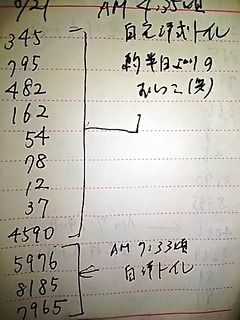 9/21 AM 4:35頃
345 自宅洋式トイレ
795 約半日よりの
482 おしっこ(笑)
162
54
78
12
37
4590
5976 AM 7:33頃
8185 自洋トイレ
7965